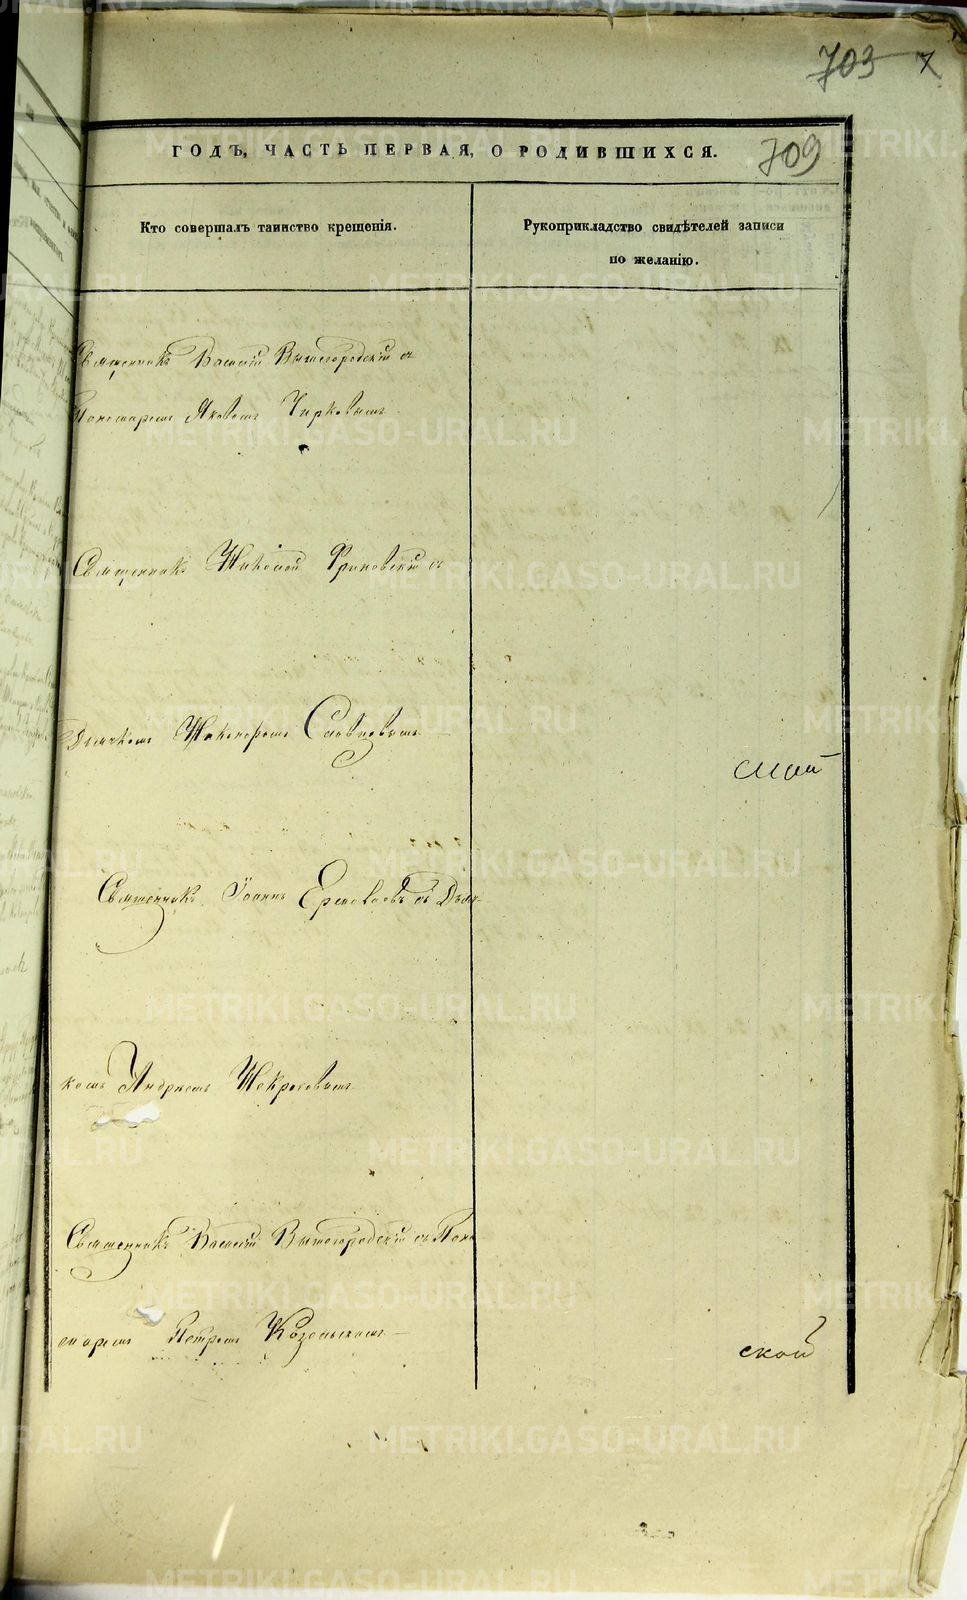 703 7
709
ГОДЪ, ЧАСТЬ ПЕРВАЯ, О РОДИВШИХСЯ.
Кто совершалъ таинство крещенія.
Рукоприкладство свидѣтелей записи
по желанію.
Священникъ Василій Вышегородскій съ
Пономаремъ Яковомъ Чирковымъ
Священникъ Николай Фриновскій съ
Дьячкомъ Никаноромъ Словцовымъ
Священникъ Іоаннъ Ермолаевъ съ Дьяч-
комъ Андреемъ Некрасовымъ
Священникъ Василій Вышегородскій съ Поно
маремъ Петромъ Козельскимъ
ской
METRIKI.GASO-URAL.RU